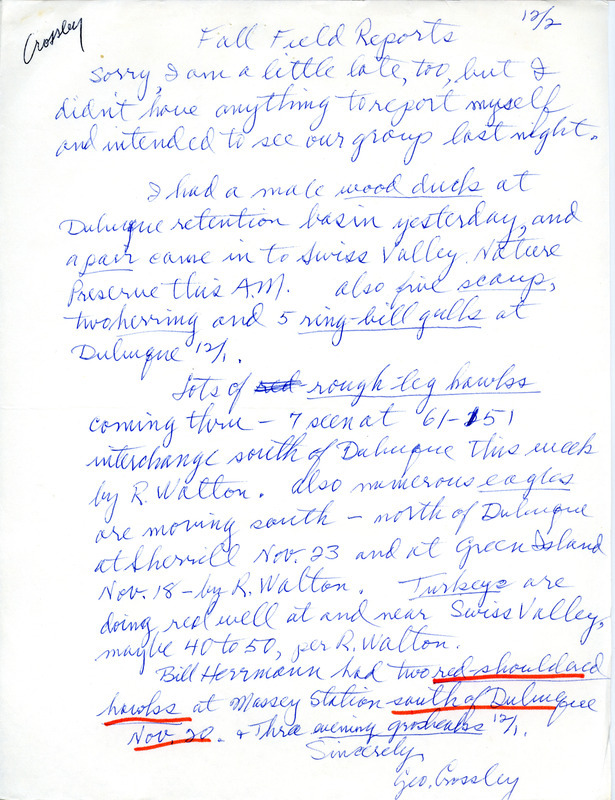 Crossley
12/2
Fall Field Reports
Sorry, I am a little late, too, but I
didn't have anything to report myself
and intended to see our group last night.
I had a male wood duck at
Dubuque retention basin yesterday, and
a pair came in to Swiss Valley Nature
Preserve this A.M. also five scaup,
two herring and 5 ring-bill gulls at
Dubuque 12/1.
Lots of red rough-leg hawks
coming thru - 7 seen at 61-151
interchange south of Dubuque this week
by R. Walton. also numerous eagles
are moving south - north of Dubuque
at Sherrill Nov. 23 and at Green Island
Nov. 18 - by R. Walton. Turkeys are
doing real well at and near Swiss Valley,
maybe 40 to 50, per R. Walton.
Bill Herrmann had two red-shouldered
hawks at Massey Station south of Dubuque
Nov. 20. & Three evening grosbeaks 12/1.
Sincerely,
Geo. Crossley